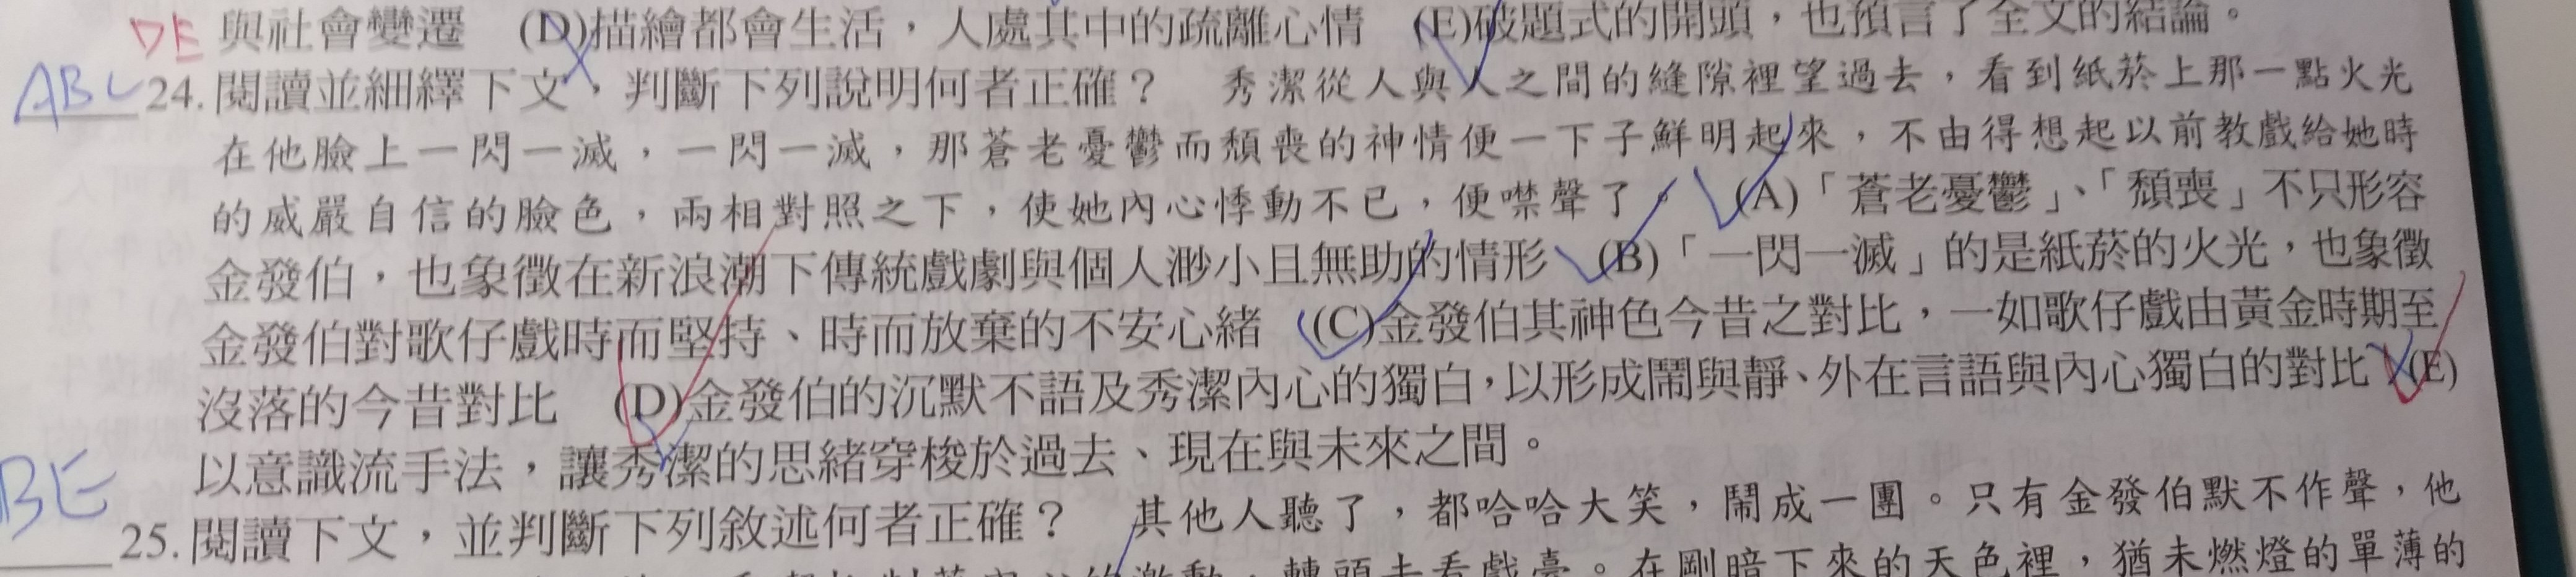 DE 與社會變遷 (D)描繪都會生活，人處其中的疏離心情 (E)破題式的開頭，也預言了全文的結論。
ABC 24. 閱讀並細繹下文，判斷下列說明何者正確？ 秀潔從人與人之間的縫隙裡望過去，看到紙菸上那一點火光
在他臉上一閃一滅，一閃一滅，那蒼老憂鬱而頹喪的神情便一下子鮮明起來，不由得想起以前教戲給她時
的威嚴自信的臉色，兩相對照之下，使她內心悸動不已，便噤聲了。 (A)「蒼老憂鬱」、「頹喪」不只形容
金發伯，也象徵在新浪潮下傳統戲劇與個人渺小且無助的情形 (B)「一閃一滅」的是紙菸的火光，也象徵
金發伯對歌仔戲時而堅持、時而放棄的不安心緒 (C)金發伯其神色今昔之對比，一如歌仔戲由黃金時期至
沒落的今昔對比 (D)金發伯的沉默不語及秀潔內心的獨白，以形成鬧與靜、外在言語與內心獨白的對比 (E)
以意識流手法，讓秀潔的思緒穿梭於過去、現在與未來之間。
BE 25. 閱讀下文，並判斷下列敘述何者正確？ 其他人聽了，都哈哈大笑，鬧成一團。只有金發伯默不作聲，他
激動，轉頭去看戲臺。在剛暗下來的天色裡，猶未燃燈的單薄的